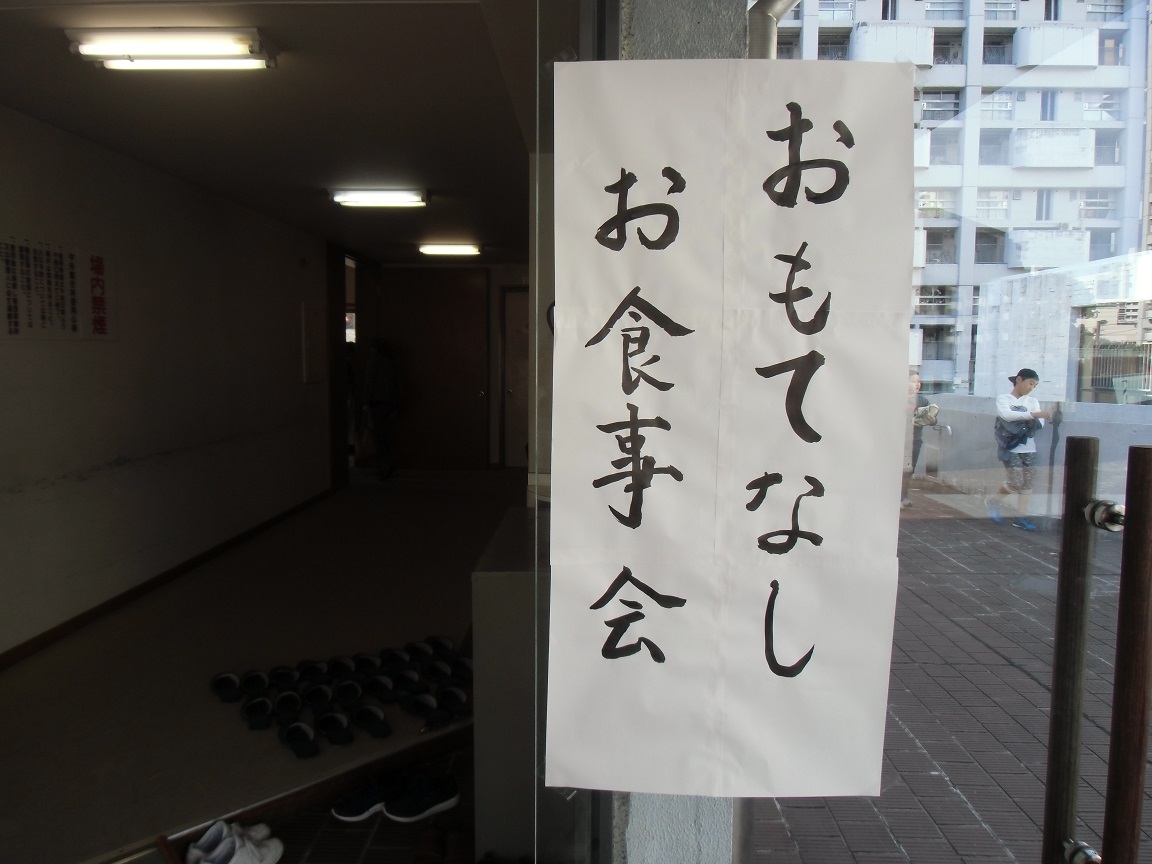 おもてなし
お食事会
場内禁煙